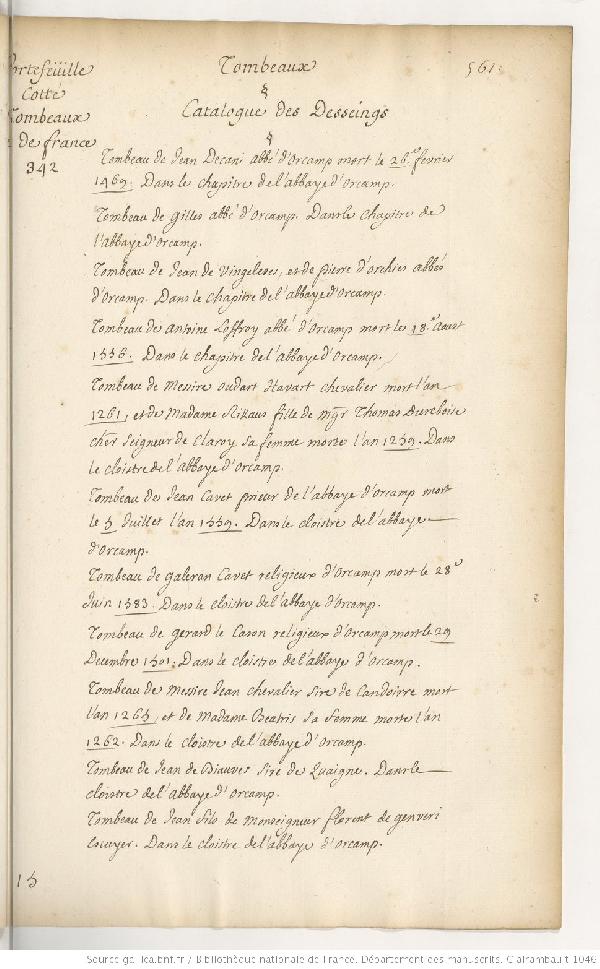 ortefeüille
Cotté
Tombeaux
de france
342
Tombeaux
561
§
Catalogue des Desseings
§
Tombeau de Jean Decani abbé d'Orcamp mort le 26.e fevrier
1469. Dans le chapitre de l'abbaye d'Orcamp.
Tombeau de Gilles abbé d'Orcamp. Dans le chapitre de
l'abbaye d'Orcamp.
Tombeau de Jean de et de pierre d'orchies abbés
d'Orcamp. Dans le chapitre de l'abbaye d'Orcamp.
Tombeau de Antoine Loffroy abbé d'Orcamp mort le 18.e Aout
1556. Dans le chapitre de l'abbaye d'Orcamp.
Tombeau de Messire oudart Havart chevalier mort l'an
1261, et de Madame fille de Mgr Thomas
cher seigneur de Claroy sa femme morte l'an 1259. Dans
le cloistre de l'abbaye d'Orcamp.
Tombeau de Jean Cavet prieur de l'abbaye d'Orcamp mort
le 5 Juillet l'an 1559. Dans le cloistre de l'abbaye
d'Orcamp.
Tombeau de galeran Cavet religieux d'Orcamp mort le 28.e
Juin 1583. Dans le cloistre de l'abbaye d'Orcamp.
Tombeau de gerard le Cason religieux d'Orcamp mort le 29
Decembre 1501. Dans le cloistre de l'abbaye d'Orcamp.
Tombeau de Messire Jean chevalier sire de Candoirre mort
l'an 1265, et de Madame Beatris sa femme morte l'an
1262. Dans le cloistre de l'abbaye d'Orcamp.
Tombeau de Jean de Biauves sire de Quaigne. Dans le
cloistre de l'abbaye d'Orcamp.
Tombeau de Jean filo de Monseigneur florent de genveri
escuyer. Dans le cloistre de l'abbaye d'Orcamp.
15
Source gallica.bnf.fr / Bibliothèque nationale de France. Département des manuscrits. Clairambault 1046